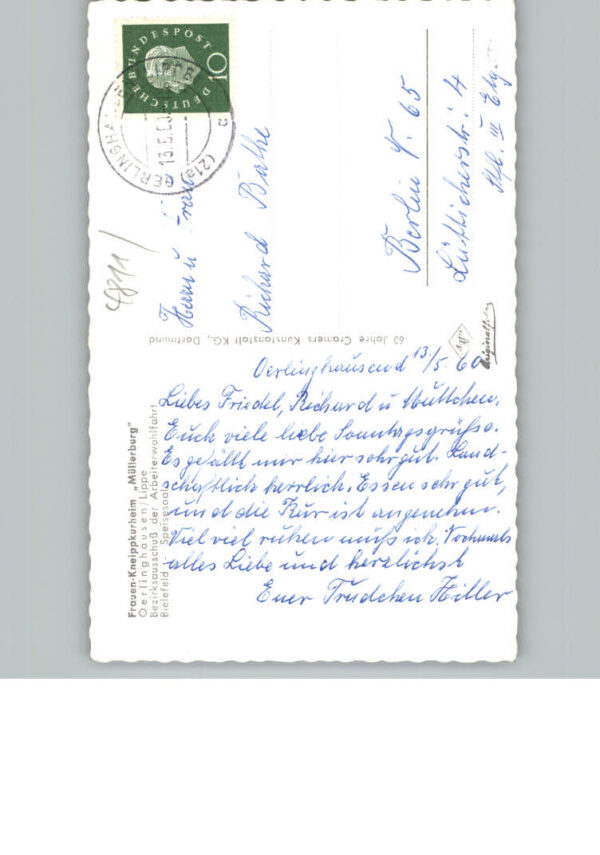 Oerlinghausend 13/5. 60
Liebes Friedel, Richard u Muttchen.
Euch viele liebe Sonntagsgrüße.
Es gefällt mir hier sehr gut. Land-
schaftlich herrlich. Essen sehr gut,
und die Kur ist angenehm.
Viel viel ruhen muß ich. Nochmals
alles Liebe und herzlichst
Euer Trudchen Hiller
Frauen-Kneippkurheim „Müllerburg"
Oerlinghausen/Lippe
Bezirksausschuß der Arbeiterwohlfahrt
Bielefeld - Speisesaal
60 Jahre Cramers Kunstanstalt KG., Dortmund
Herrn u Frau
Richard Bathe
Berlin N. 65
Lütticherstr. 4
Stfl. III Etg.
4811/
DEUTSCHE BUNDESPOST
10
(21a) OERLINGHAUSEN
13.5.60
a